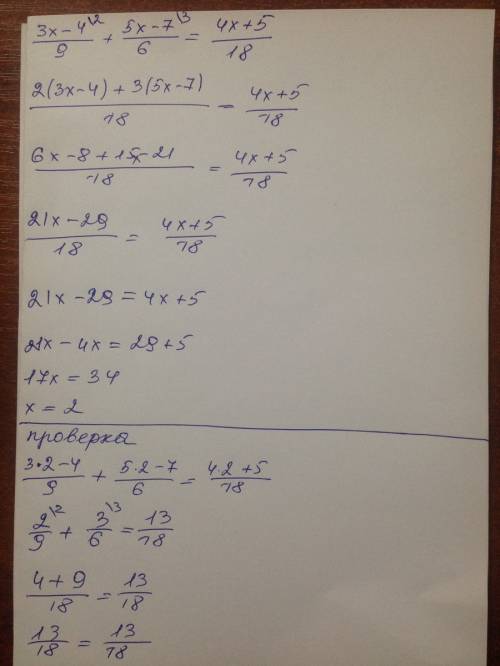 (3x-4)/9 \2 + (5x-7)/6 \3 = (4x+5)/18
(2(3x-4)+3(5x-7))/18 = (4x+5)/18
(6x-8+15x-21)/18 = (4x+5)/18
(21x-29)/18 = (4x+5)/18
21x-29=4x+5
21x-4x=29+5
17x=34
x=2
проверка
(3·2-4)/9 + (5·2-7)/6 = (4·2+5)/18
2/9 \2 + 3/6 \3 = 13/18
(4+9)/18 = 13/18
13/18 = 13/18